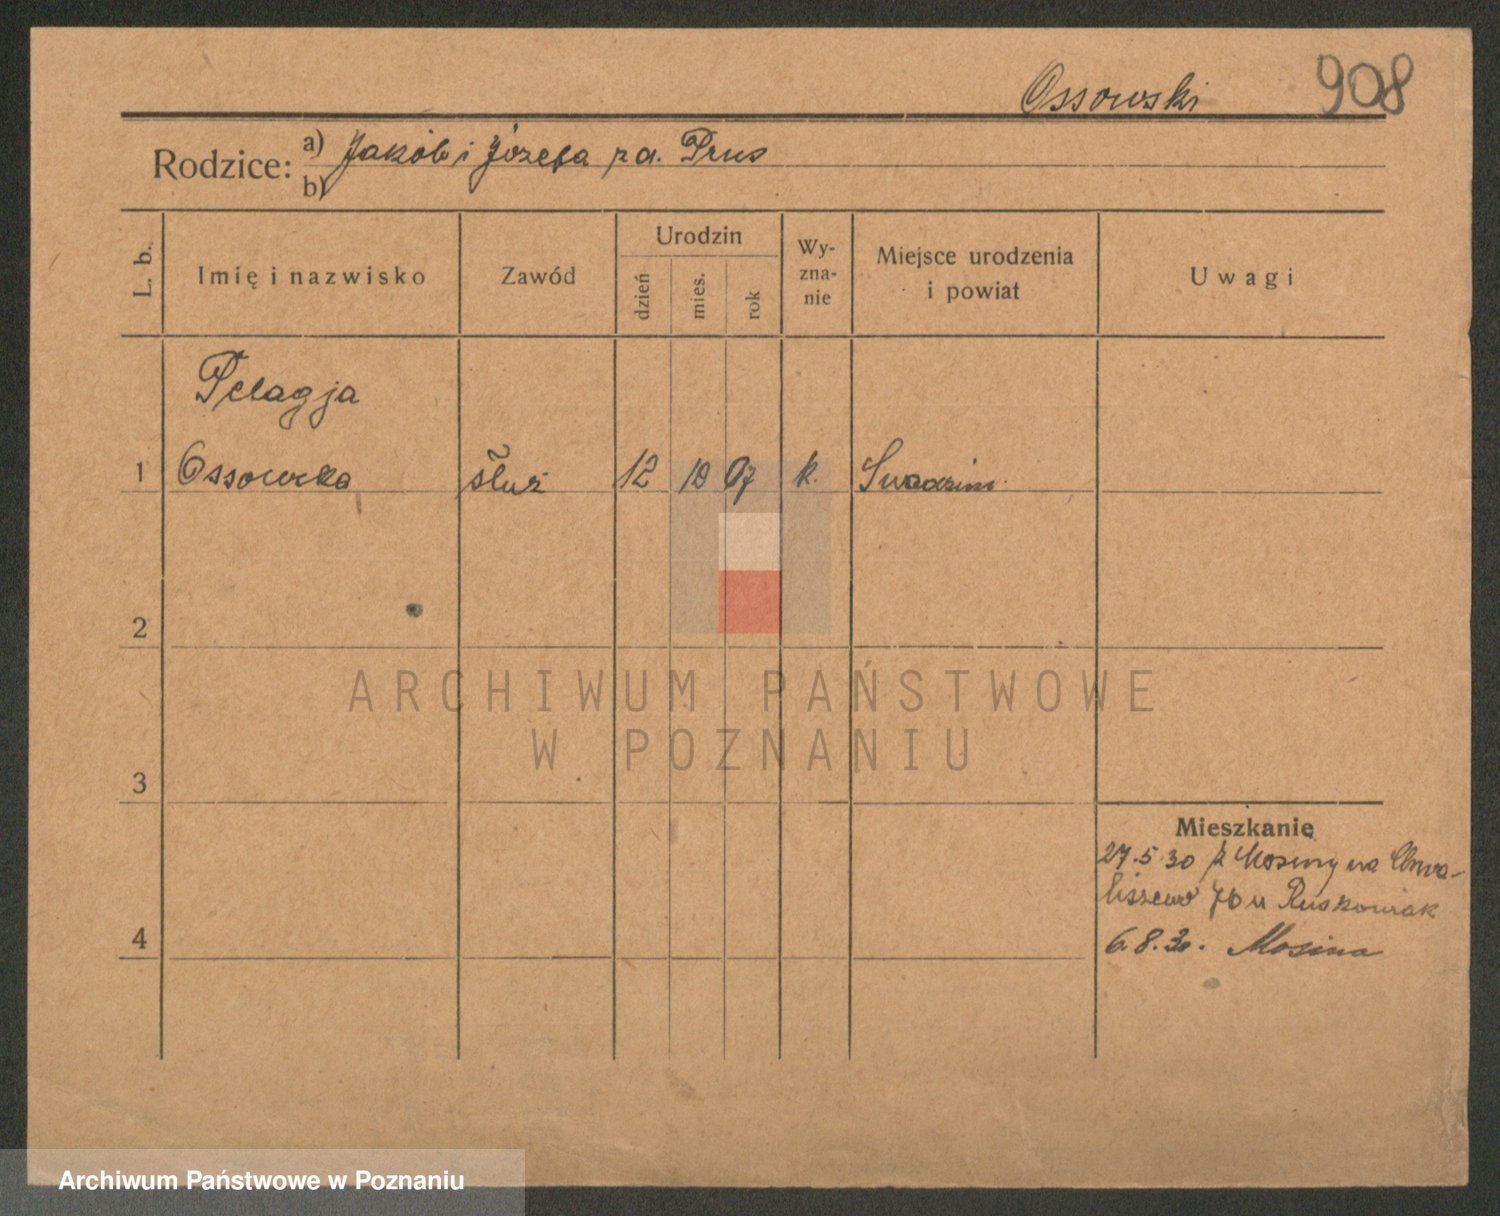 Ossowski 908
Rodzice: a) Jakób i Józefa z d. Prus
b)
L. b.
Imię i nazwisko
Zawód
Urodzin
dzień
mies.
rok
Wy-
zna-
nie
Miejsce urodzenia
i powiat
Uwagi
Pelagja
1 Ossowska służ 12 10 07 k. Swadzim
2
ARCHIWUM PAŃSTWOWE
W POZNANIU
3
Mieszkanie
27.5.30 z Mosiny na Chwa-
liszewo 76 u Ruszkowiak
4 6.8.30. Mosina
Archiwum Państwowe w Poznaniu